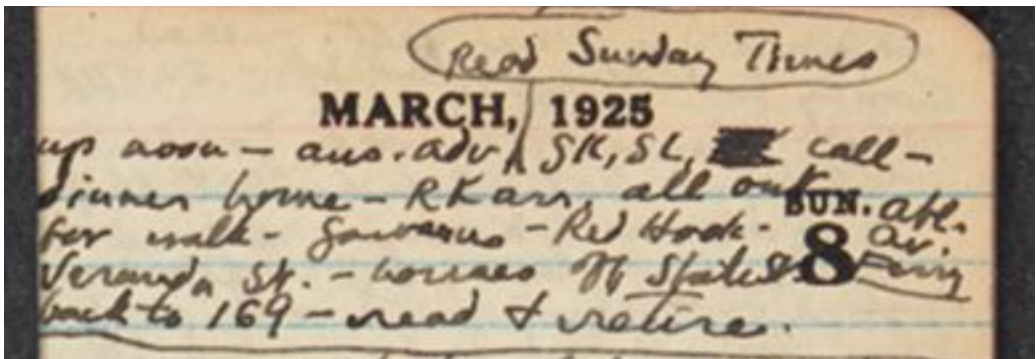 Read Sunday Times
MARCH, 1925
up noon – ans. adv, SK, SL, call –
dinner home – RK arr. all out
SUN.
for walk – Gowanus – Red Hook – Atl.
8
Veranda St. – houses off State St Av. Ferry
back to 169 – read & retire.